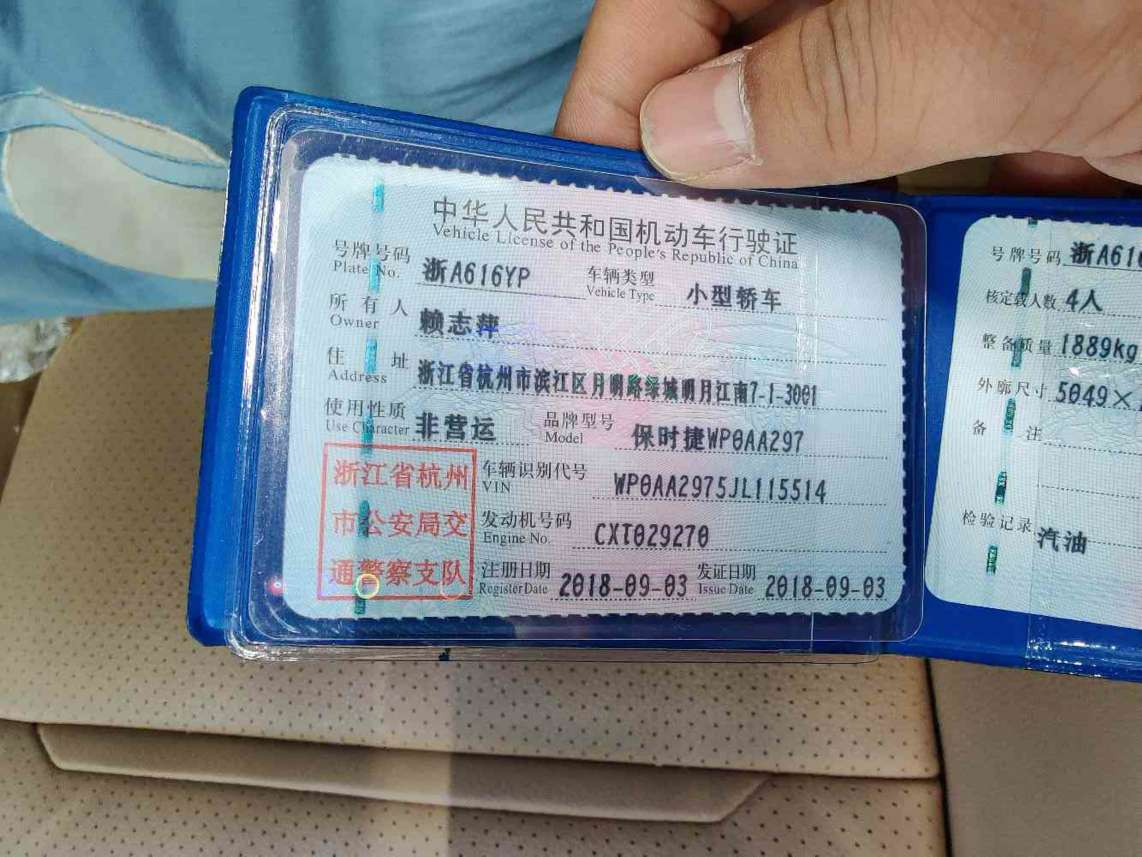 中华人民共和国机动车行驶证
Vehicle License of the People's Republic of China
号牌号码 浙A616YP 车辆类型 小型轿车
Plate No. Vehicle Type
所有人 赖志萍
Owner
住址 浙江省杭州市滨江区月明路绿城明月江南7-1-3001
Address
使用性质 非营运 品牌型号 保时捷WP0AA297
Use Character Model
浙江省杭州
市公安局交
通警察支队
车辆识别代号 WP0AA2975JL115514
VIN
发动机号码 CXT029270
Engine No.
注册日期 2018-09-03 发证日期 2018-09-03
Register Date Issue Date
号牌号码 浙A616
核定载人数 4人
整备质量 1889kg
外廓尺寸 5049×
备注
检验记录 汽油